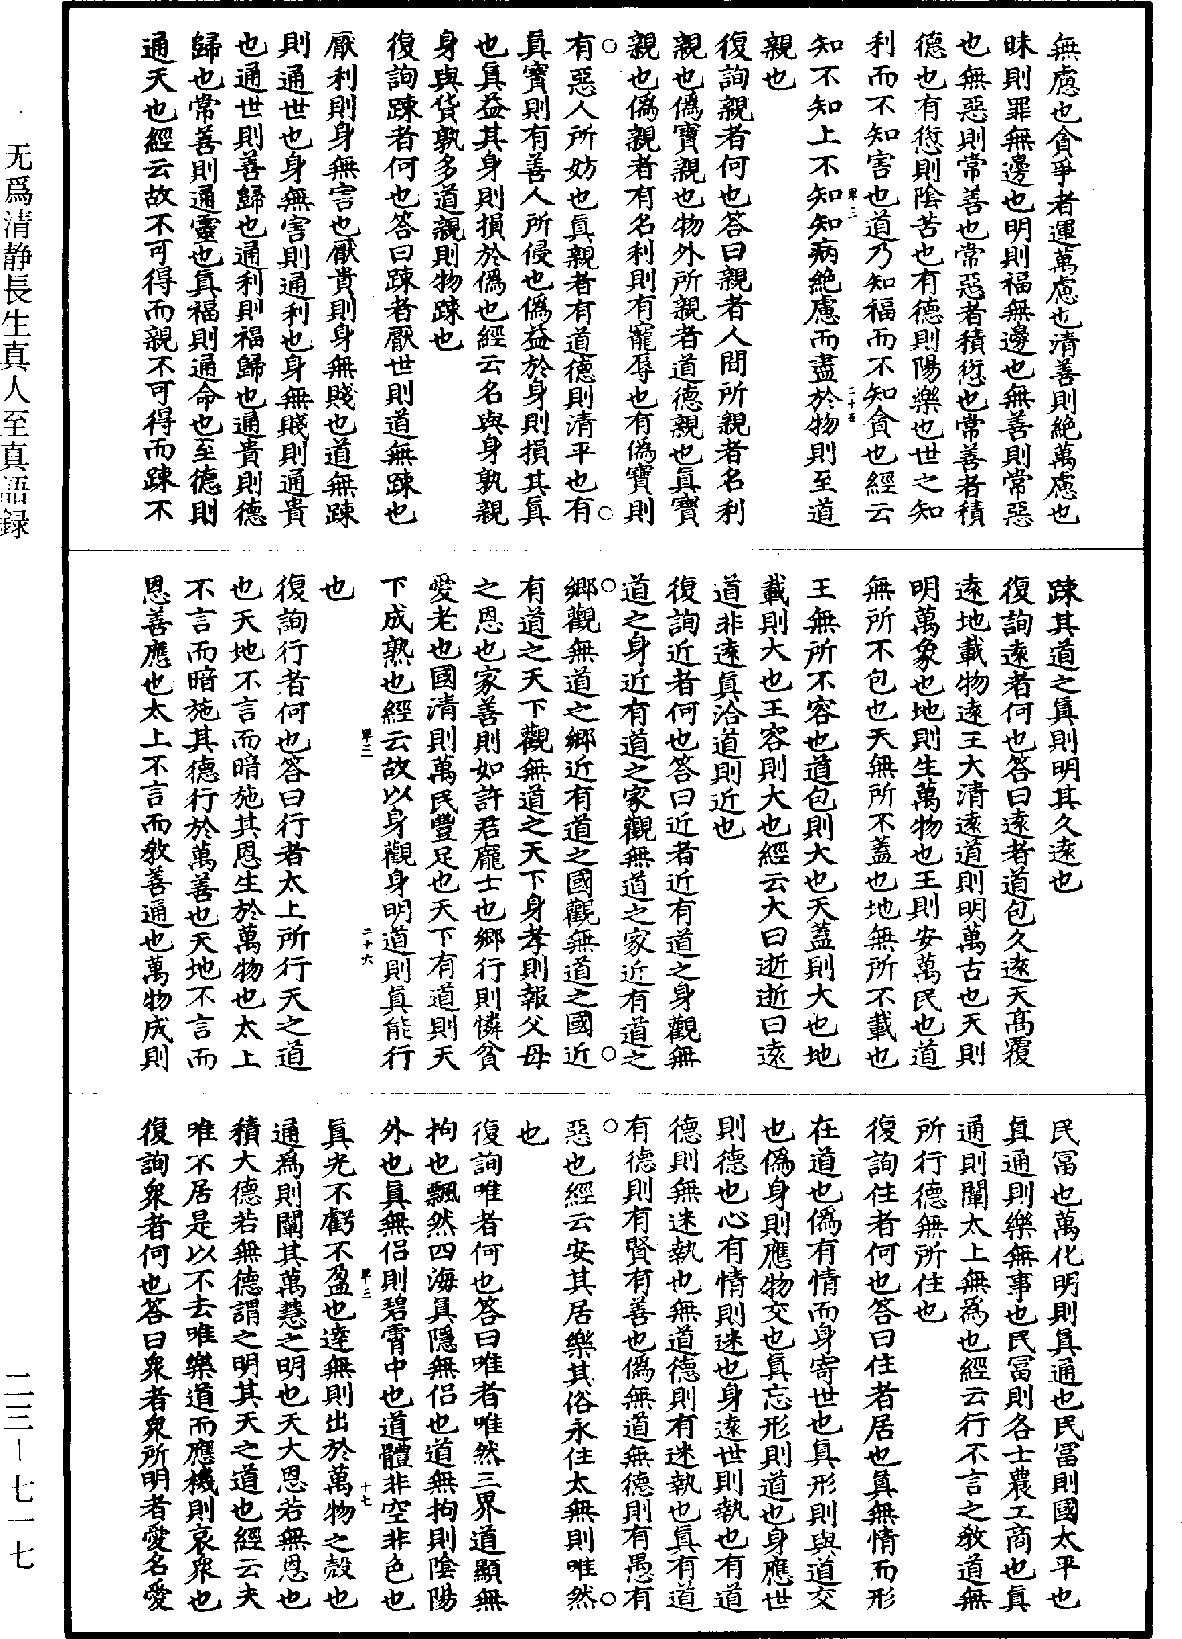 無慮也貪爭者運萬慮也清善則絕萬慮也
昧則罪無邊也明則福無邊也無善則常惡
也無惡則常善也常惡者積愆也常善者積
德也有愆則陰苦也有德則陽樂也世之知
利而不知害也道乃知福而不知貪也經云
知不知上不知知病絕慮而盡於物則至道
親也
復詢親者何也答曰親者人間所親者名利
親也僞寶親也物外所親者道德親也真寶
親也僞親者有名利則有寵辱也有僞寶則
有惡人所妨也真親者有道德則清平也有
真寶則有善人所侵也僞益於身則損其真
也真益其身則損於僞也經云名與身孰親
身與貨孰多道親則物踈也
復詢踈者何也答曰踈者厭世則道無踈也
厭利則身無害也厭貴則身無賤也道無踈
則通世也身無害則通利也身無賤則通貴
也通世則善歸也通利則福歸也通貴則德
歸也常善則通靈也真福則通命也至德則
通天也經云故不可得而親不可得而踈不
踈其道之真則明其久遠也
復詢遠者何也答曰遠者道包久遠天高覆
遠地載物遠王大清遠道則明萬古也天則
明萬象也地則生萬物也王則安萬民也道
無所不包也天無所不蓋也地無所不載也
王無所不容也道包則大也天蓋則大也地
載則大也王容則大也經云大曰逝逝曰遠
道非遠真洽道則近也
復詢近者何也答曰近者近有道之身觀無
道之身近有道之家觀無道之家近有道之
鄉觀無道之鄉近有道之國觀無道之國近
有道之天下觀無道之天下身孝則報父母
之恩也家善則如許君龐士也鄉行則憐貧
愛老也國清則萬民豐足也天下有道則天
下成熟也經云故以身觀身明道則真能行
也
復詢行者何也答曰行者太上所行天之道
也天地不言而暗施其恩生於萬物也太上
不言而暗施其德行於萬善也天地不言而
恩善應也太上不言而教善通也萬物成則
民冨也萬化明則真通也民冨則國太平也
真通則樂無事也民冨則各士農工商也真
通則闡太上無為也經云行不言之教道無
所行德無所住也
復詢住者何也答曰住者居也真無情而形
在道也僞有情而身寄世也真形則與道交
也僞身則應物交也真忘形則道也身應世
則德也心有情則迷也身遠世則執也有道
德則無迷執也無道德則有迷執也真有道
有德則有賢有善也僞無道無德則有愚有
惡也經云安其居樂其俗永住太無則唯然
也
復詢唯者何也答曰唯者唯然三界道顯無
拘也飄然四海真隱無侶也道無拘則陰陽
外也真無侶則碧霄中也道體非空非色也
真光不虧不盈也達無則出於萬物之殼也
通為則闡其萬慧之明也天大恩若無恩也
積大德若無德謂之明其天之道也經云夫
唯不居是以不去唯樂道而應機則哀衆也
復詢衆者何也答曰衆者衆所明者愛名愛
无爲清静長生真人至真語録
二三－七一七